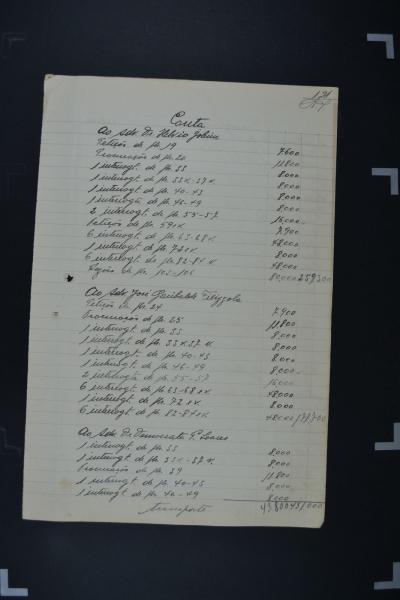 121
Conta
Ao adv. Dr. Helvio Jobim
Petição de fls. 19 7.600
Procuração de fls. 20 11.800
1 interrogt. de fls. 33 8.000
1 interrogt. de fls. 33v-37v. 8.000
1 interrogt. de fls. 40-43 8.000
1 interrogt. de fls. 46-49 8.000
2 interrogt. de fls. 55-57 16.000
Petição de fls. 59 7.900
6 interrogt. de fls. 63-68v. 48.000
1 interrogt. de fls. 72 8.000
6 interrogt. de fls. 82-84v. 48.000
Razões de fls. 102-106 80.000 259.300
Ao adv. José Garibaldi
Petição de fls. 24 7.900
Procuração de fls. 25 11.800
1 interrogt. de fls. 33 8.000
1 interrogt. de fls. 33v.37v. 8.000
1 interrogt. de fls. 40-43 8.000
1 interrogt. de fls. 46-49 8.000
2 interrogt. de fls. 55-57 16.000
6 interrogt. de fls. 63-68v. 48.000
1 interrogt. de fls. 72 8.000
6 interrogt. de fls. 82-84v. 48.000
Ao adv. Dr. Democrata
1 interrogt. de fls. 33 8.000
1 interrogt. de fls. 33v-37v. 8.000
Procuração de fls. 39 11.800
1 interrogt. de fls. 40-43 8.000
1 interrogt. de fls. 46-49 8.000
transporte 43.800